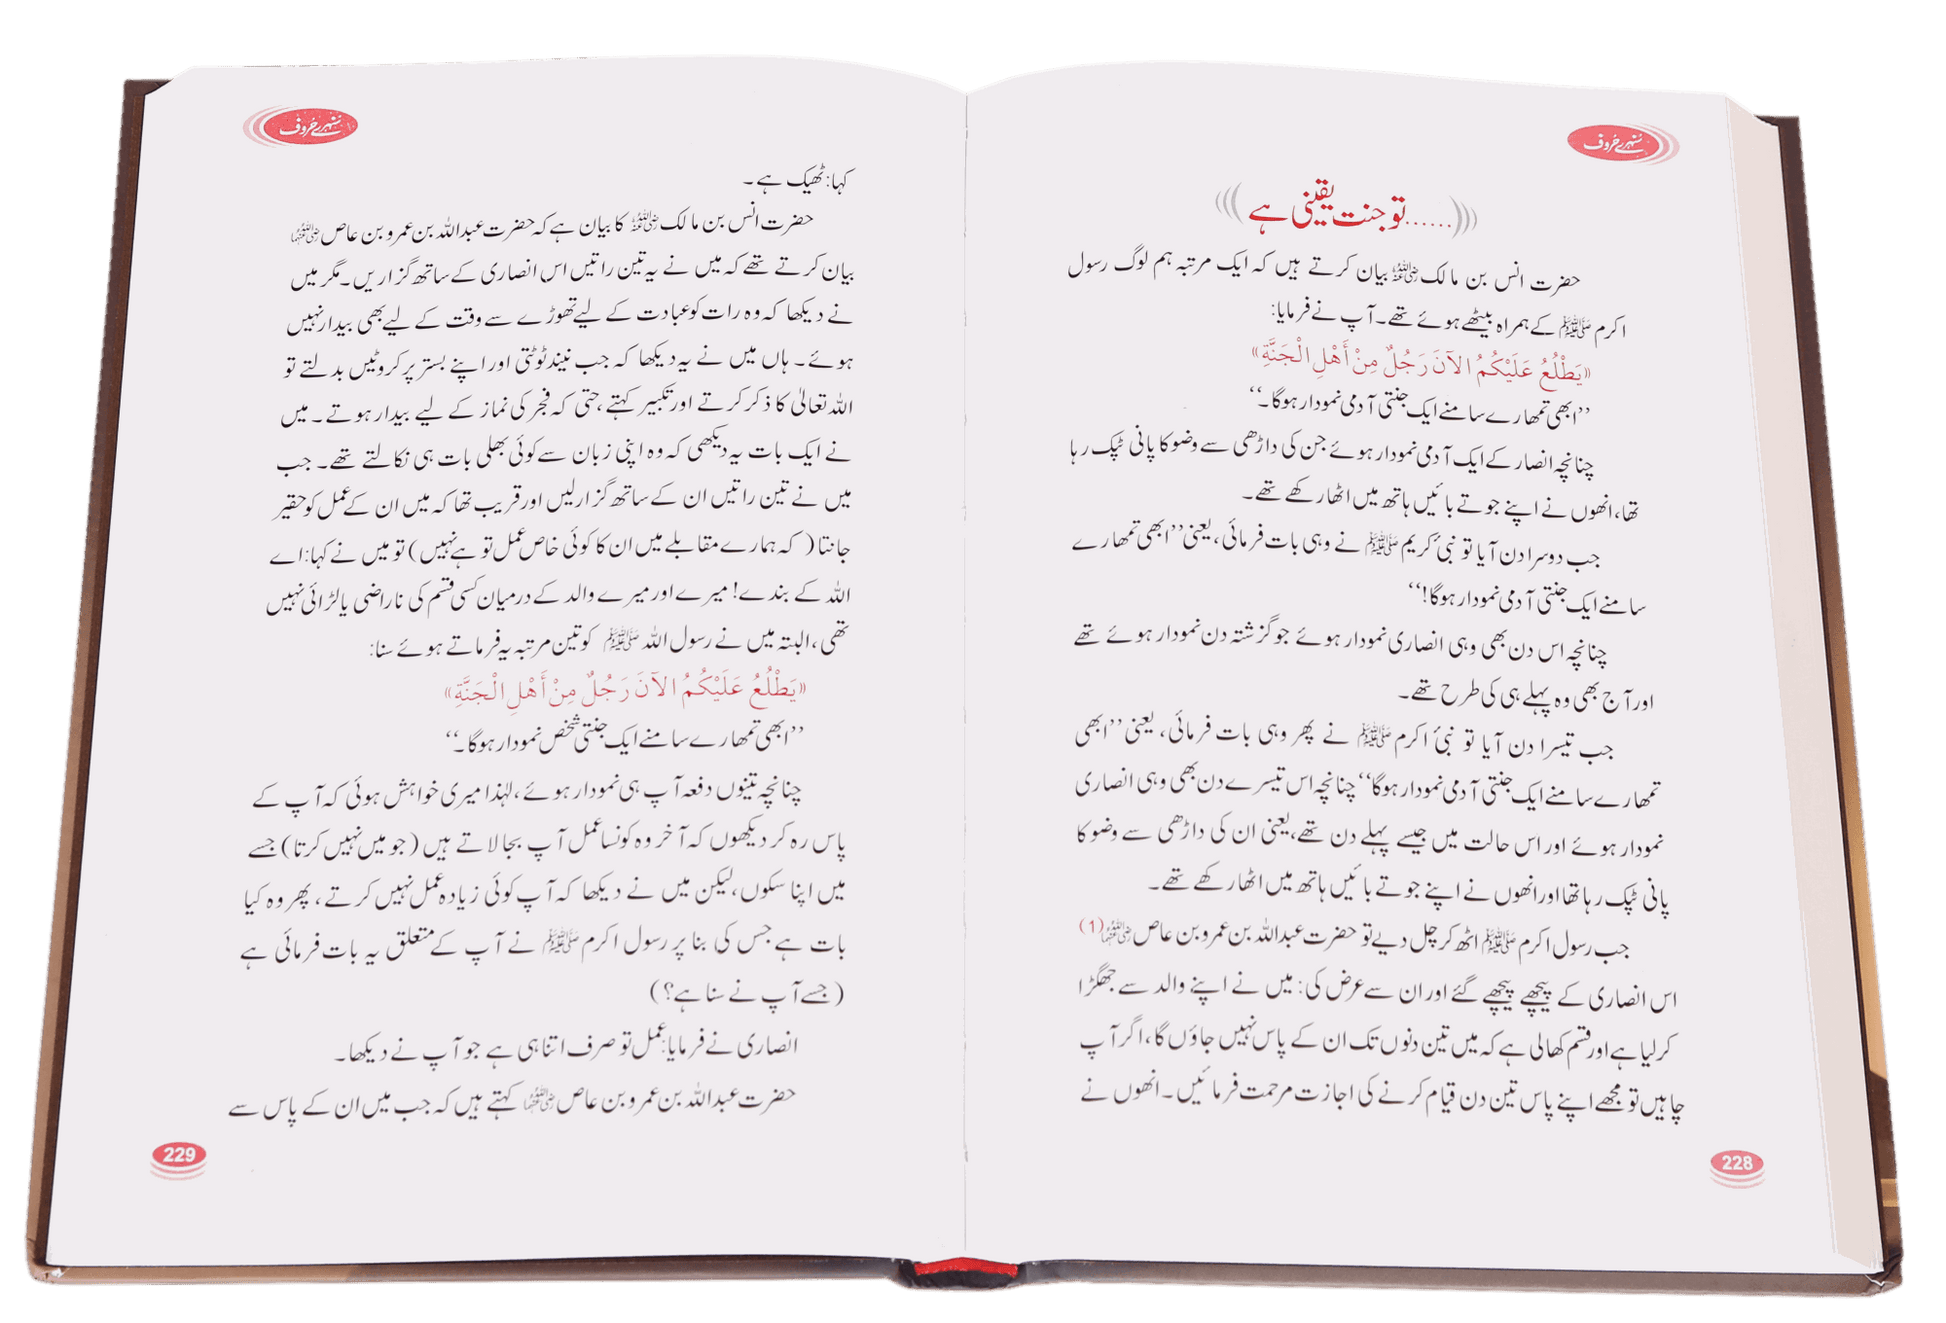 سنہرے حروف
......تو جنت یقینی ہے
حضرت انس بن مالک رضی اللہ عنہ بیان کرتے ہیں کہ ایک مرتبہ ہم لوگ رسول
اکرم ﷺ کے ہمراہ بیٹھے ہوئے تھے۔ آپ نے فرمایا:
«يَطْلُعُ عَلَيْكُمُ الْآنَ رَجُلٌ مِنْ أَهْلِ الْجَنَّةِ»
’’ابھی تمھارے سامنے ایک جنتی آدمی نمودار ہوگا۔‘‘
چنانچہ انصار کے ایک آدمی نمودار ہوئے جن کی داڑھی سے وضو کا پانی ٹپک رہا
تھا، انھوں نے اپنے جوتے بائیں ہاتھ میں اٹھا رکھے تھے۔
جب دوسرا دن آیا تو نبیٔ کریم ﷺ نے وہی بات فرمائی، یعنی ’’ابھی تمھارے
سامنے ایک جنتی آدمی نمودار ہوگا!‘‘
چنانچہ اس دن بھی وہی انصاری نمودار ہوئے جو گزشتہ دن نمودار ہوئے تھے
اور آج بھی وہ پہلے ہی کی طرح تھے۔
جب تیسرا دن آیا تو نبیٔ اکرم ﷺ نے پھر وہی بات فرمائی، یعنی ’’ابھی
تمھارے سامنے ایک جنتی آدمی نمودار ہوگا‘‘ چنانچہ اس تیسرے دن بھی وہی انصاری
نمودار ہوئے اور اس حالت میں جیسے پہلے دن تھے، یعنی ان کی داڑھی سے وضو کا
پانی ٹپک رہا تھا اور انھوں نے اپنے جوتے بائیں ہاتھ میں اٹھا رکھے تھے۔
جب رسول اکرم ﷺ اٹھ کر چل دیے تو حضرت عبداللہ بن عمرو بن عاص رضی اللہ عنہما (1)
اس انصاری کے پیچھے پیچھے گئے اور ان سے عرض کی: میں نے اپنے والد سے جھگڑا
کر لیا ہے اور قسم کھالی ہے کہ میں تین دنوں تک ان کے پاس نہیں جاؤں گا، اگر آپ
چاہیں تو مجھے اپنے پاس تین دن قیام کرنے کی اجازت مرحمت فرمائیں۔ انھوں نے
228
سنہرے حروف
کہا: ٹھیک ہے۔
حضرت انس بن مالک رضی اللہ عنہ کا بیان ہے کہ حضرت عبداللہ بن عمرو بن عاص رضی اللہ عنہما
بیان کرتے تھے کہ میں نے یہ تین راتیں اس انصاری کے ساتھ گزاریں۔ مگر میں
نے دیکھا کہ وہ رات کو عبادت کے لیے تھوڑے سے وقت کے لیے بھی بیدار نہیں
ہوئے۔ ہاں میں نے یہ دیکھا کہ جب نیند ٹوٹتی اور اپنے بستر پر کروٹیں بدلتے تو
اللہ تعالیٰ کا ذکر کرتے اور تکبیر کہتے، حتی کہ فجر کی نماز کے لیے بیدار ہوتے۔ میں
نے ایک بات یہ دیکھی کہ وہ اپنی زبان سے کوئی بھلی بات ہی نکالتے تھے۔ جب
میں نے تین راتیں ان کے ساتھ گزار لیں اور قریب تھا کہ میں ان کے عمل کو حقیر
جانتا (کہ ہمارے مقابلے میں ان کا کوئی خاص عمل تو ہے نہیں) تو میں نے کہا: اے
اللہ کے بندے! میرے اور میرے والد کے درمیان کسی قسم کی ناراضی یا لڑائی نہیں
تھی، البتہ میں نے رسول اللہ ﷺ کو تین مرتبہ یہ فرماتے ہوئے سنا:
«يَطْلُعُ عَلَيْكُمُ الْآنَ رَجُلٌ مِنْ أَهْلِ الْجَنَّةِ»
’’ابھی تمھارے سامنے ایک جنتی شخص نمودار ہوگا۔‘‘
چنانچہ تینوں دفعہ آپ ہی نمودار ہوئے، لہٰذا میری خواہش ہوئی کہ آپ کے
پاس رہ کر دیکھوں کہ آخر وہ کونسا عمل آپ بجا لاتے ہیں (جو میں نہیں کرتا) جسے
میں اپنا سکوں، لیکن میں نے دیکھا کہ آپ کوئی زیادہ عمل نہیں کرتے، پھر وہ کیا
بات ہے جس کی بنا پر رسول اکرم ﷺ نے آپ کے متعلق یہ بات فرمائی ہے
(جسے آپ نے سنا ہے؟)
انصاری نے فرمایا: عمل تو صرف اتنا ہی ہے جو آپ نے دیکھا۔
حضرت عبداللہ بن عمرو بن عاص رضی اللہ عنہما کہتے ہیں کہ جب میں ان کے پاس سے
229